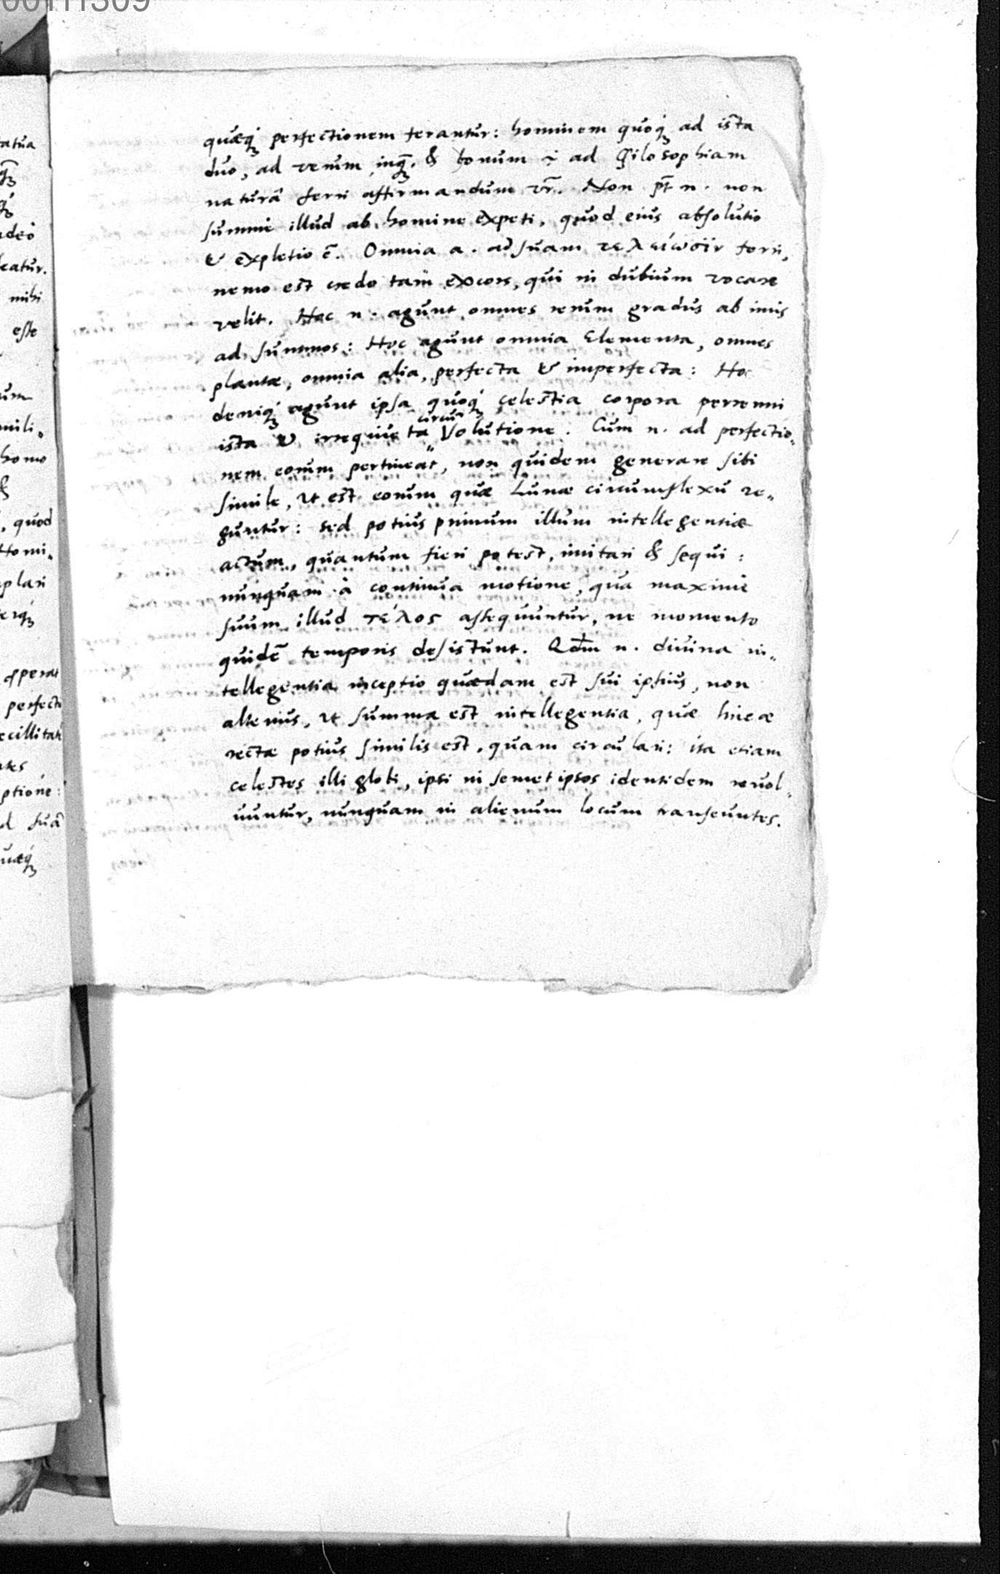 quæq́ꝫ perfectionem ferantur: hominem quoq́ꝫ ad ista
duo, ad verum inq̃ꝫ, & bonum i ad Philosophiam
naturâ ferri affirmandum vr̃. Non pt̃ n. non
summè illud ab homine expeti, quod eius absolutio
& expletio ẽ. Omnia a. ad suam τελείωσιν ferri,
nemo est credo tam excors, qui in dubium vocare
velit. Hoc n. agunt omnes rerum gradus ab imis
ad summos: Hoc agunt omnia Elementa, omnes
plantæ, omnia alia, perfecta & imperfecta: Hoc
deniq́ꝫ agunt ipsa quoq́ꝫ celestia corpora perenni
ista & irrequieta circum Volutione. Cum n. ad perfectio„
nem eorum pertineat, non quidem generare sibi
simile, ut est eorum quæ Lunæ circumflexu re„
guntur: sed potius primum illum intellegentiæ
actum, quantum fieri potest, imitari & sequi:
nunquam à continua motione, qua maximè
suum illud τέλος assequuntur, ne momento
quidẽ temporis desistunt. Qdm̃ n. diuina in„
tellegentia inceptio quædam est sui ipsius, non
alterius, ut summa est intellegentia, quæ lineæ
rectæ potius similis est, quam circulari: ita etiam
celestes illi globi, ipsi in semet ipsos identidem reuol„
uuntur, nunquam in alienum locum transeuntes.